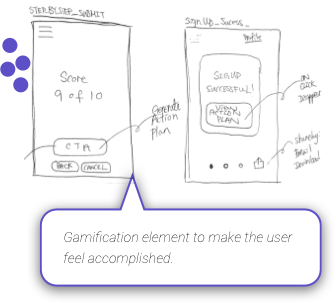 STEPBYSTEP_SUBMIT
Score
9 of 10
CTA
BACK
CANCEL
Generate
Action
Plan
SignUp_Success_
Profile
SIGNUP
SUCCESSFUL!
VIEW
ACTION
PLAN
ON
Click
Disappear
shareby:
Email
Download
Gamification element to make the user
feel accomplished.